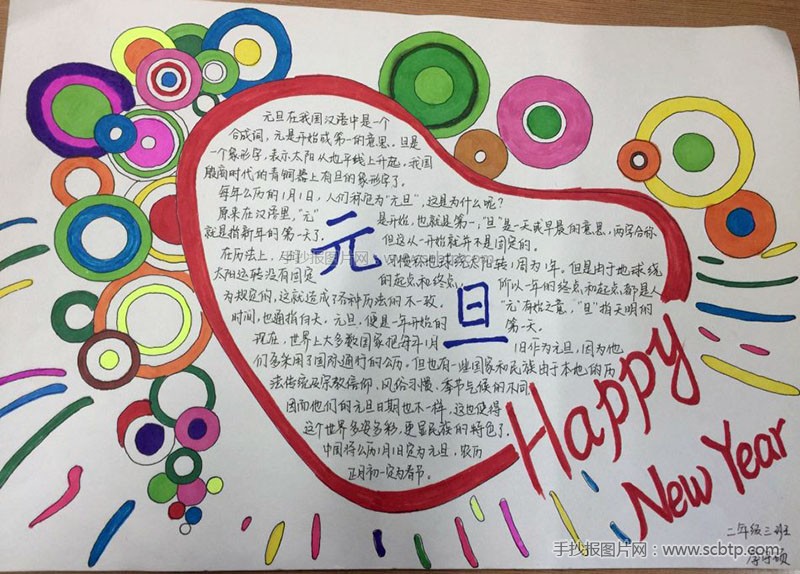 元旦在我国汉语中是一个
合成词，元是开始或第一的意思。旦是
一个象形字，表示太阳从地平线上升起，我国
殷商时代的青铜器上有旦的象形字了。
每年公历的1月1日，人们称它为“元旦”，这是为什么呢？
原来在汉语里，“元” 是开始，也就是第一，“旦”是一天或早晨的意思，两字合称
就是指新年的第一天了。 但这从一开始就并不是固定的。
元
在历法上，人们 习惯称地球绕太阳转1周为1年。但是由于地球绕
太阳运转没有固定 的起点和终点， 所以一年的终点和起点都是人
为规定的，这就造成了各种历法的不一致。 “元”有始之意，“旦”指天明的
旦
时间，也通指白天。元旦，便是一年开始的 第一天。
现在，世界上大多数国家把每年1月 1日作为元旦，因为他
们多采用了国际通行的公历。但也有一些国家和民族由于本地的历
法传统及宗教信仰、风俗习惯、季节气候的不同，
因而他们的元旦日期也不一样。这也使得
这个世界多姿多彩，更富民族的特色了。
中国将公历1月1日定为元旦，农历
正月初一定为春节。
Happy
New Year
二年级三班
手抄报图片网
手抄报图片网：www.scbtp.com